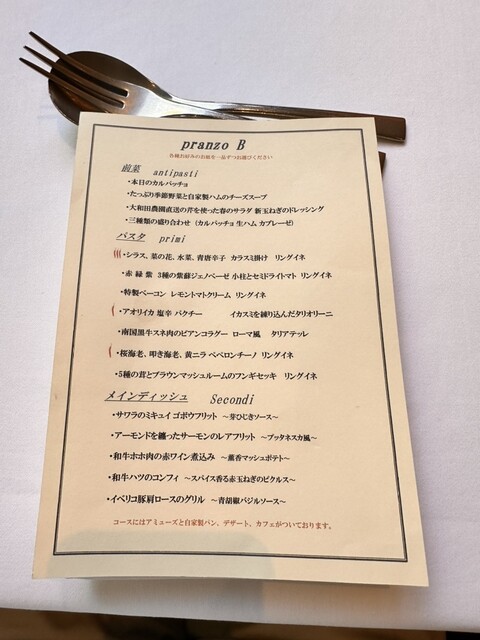 pranzo B
各種お好みのお皿を一品ずつお選びください
前菜 antipasti
・本日のカルパッチョ
・たっぷり季節野菜と自家製ハムのチーズスープ
・大和田農園直送の芹を使った春のサラダ 新玉ねぎのドレッシング
・三種類の盛り合わせ (カルパッチョ 生ハム カプレーゼ)
パスタ primi
・シラス、菜の花、水菜、青唐辛子 カラスミ掛け リングイネ
・赤 緑 紫 3種の紫蘇ジェノベーゼ 小柱とセミドライトマト リングイネ
・特製ベーコン レモントマトクリーム リングイネ
・アオリイカ 塩辛 パクチー イカスミを練り込んだタリオリーニ
・南国黒牛スネ肉のビアンコラグー ローマ風 タリアテッレ
・桜海老、叩き海老、黄ニラ ペペロンチーノ リングイネ
・5種の茸とブラウンマッシュルームのフンギセッキ リングイネ
メインディッシュ Secondi
・サワラのミキュイ ゴボウフリット ～芽ひじきソース～
・アーモンドを纏ったサーモンのレアフリット ～プッタネスカ風～
・和牛ホホ肉の赤ワイン煮込み ～薫香マッシュポテト～
・和牛ハツのコンフィ ～スパイス香る赤玉ねぎのピクルス～
・イベリコ豚肩ロースのグリル ～青胡椒バジルソース～
コースにはアミューズと自家製パン、デザート、カフェがついております。